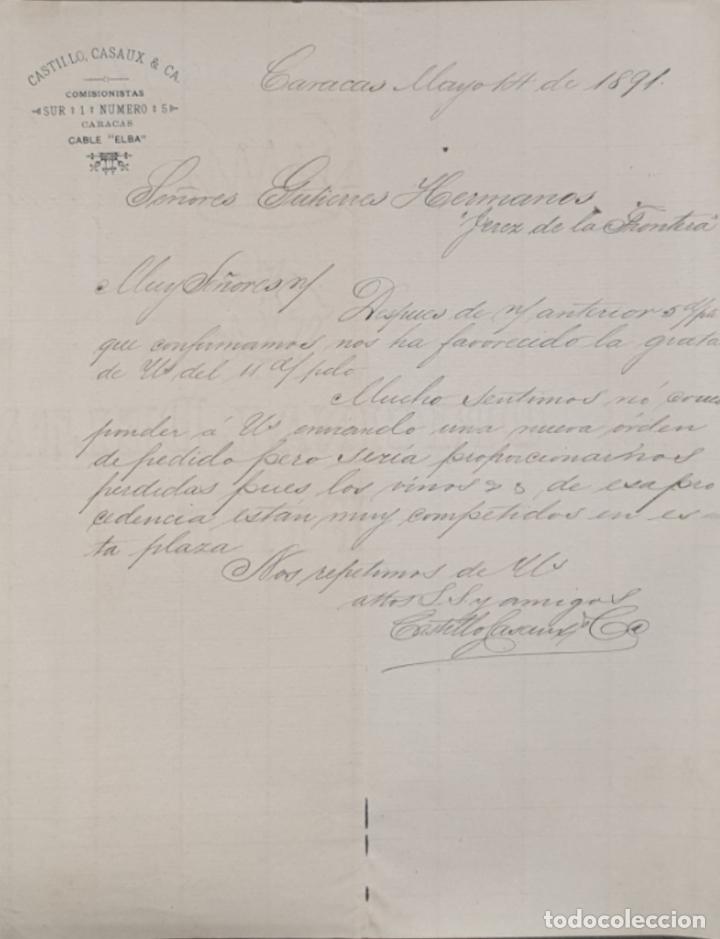 CASTILLO, CASAUX & CA.
COMISIONISTAS
SUR 1 NUMERO 5
CARACAS
CABLE "ELBA"
Caracas Mayo 14 de 1891.
Señores Gutierres Hermanos
Jerez de la Frontera
Muy Señores n/
Despues de n/ anterior 5
que confirmamos nos ha favorecido la grata
de Us del 11 d/ pdo
Mucho sentimos nó corres
ponder á Us enviando una nueva órden
de pedido pero sería proporcionarnos
pérdidas pues los vinos de esa pro
cedencia están muy competidos en es
ta plaza
Nos repetimos de Us
attos S. S y amigos
Castillo Casaux & Ca
todocoleccion